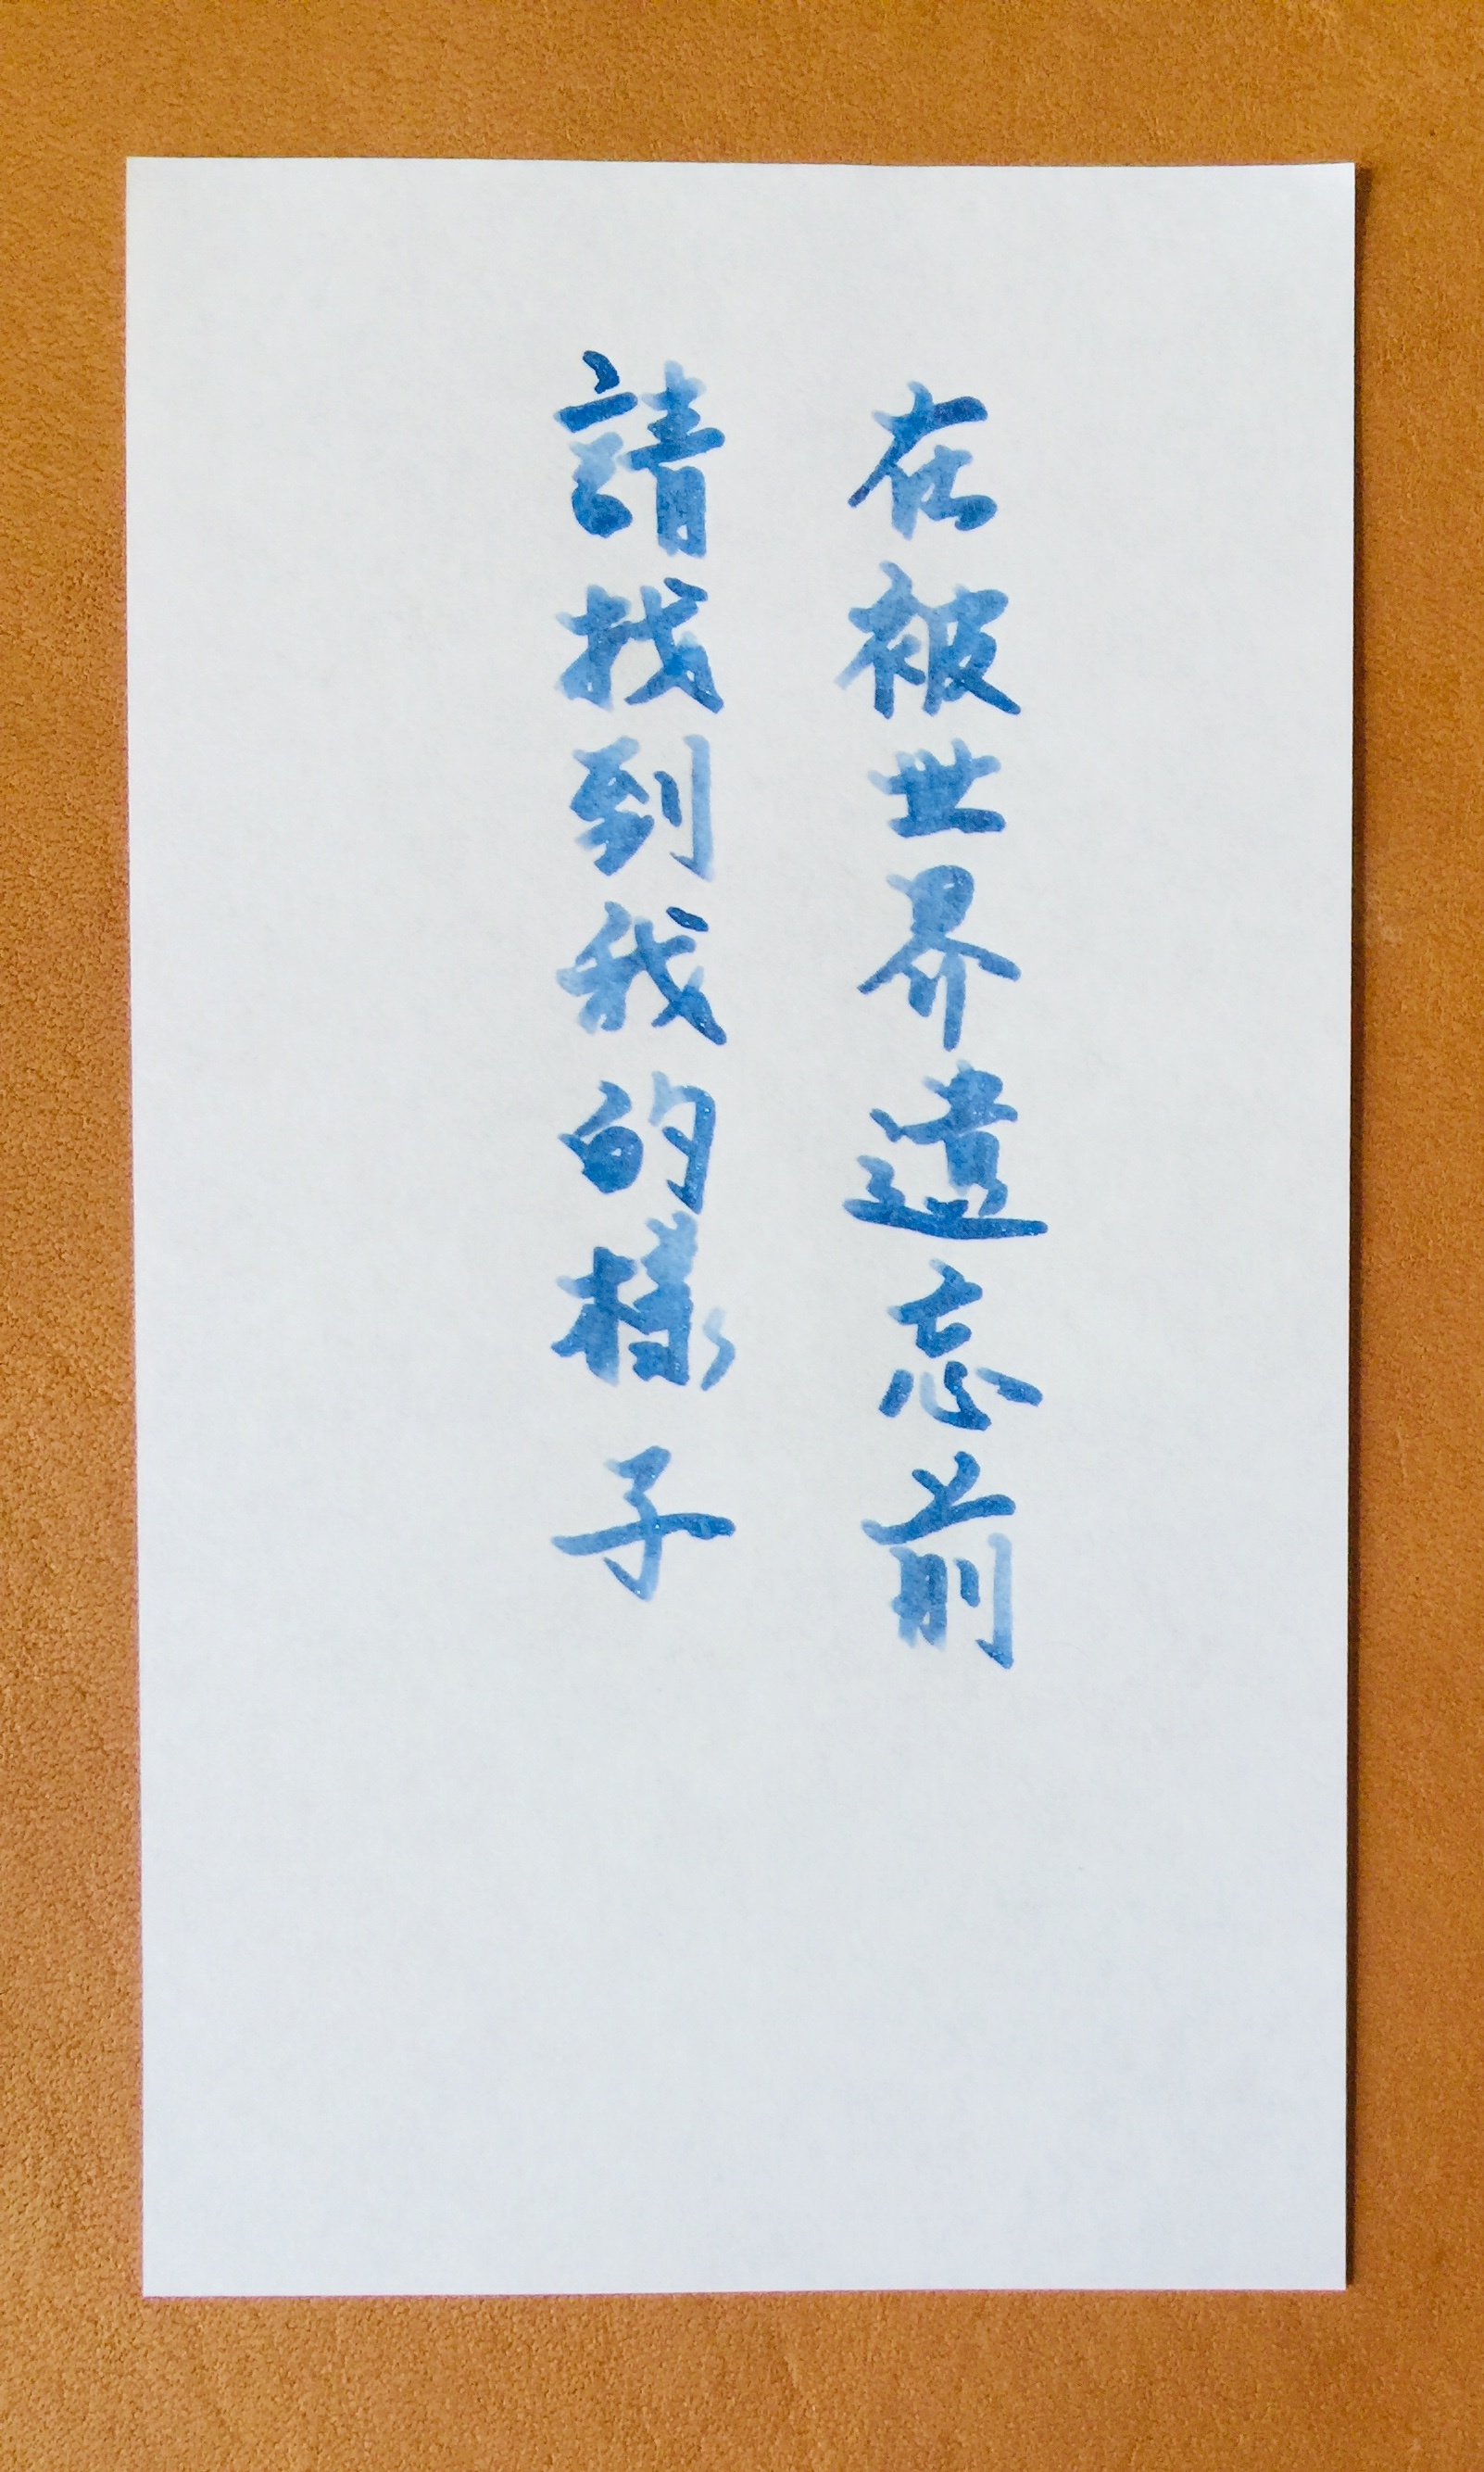 在被世界遺忘前
請找到我的樣子